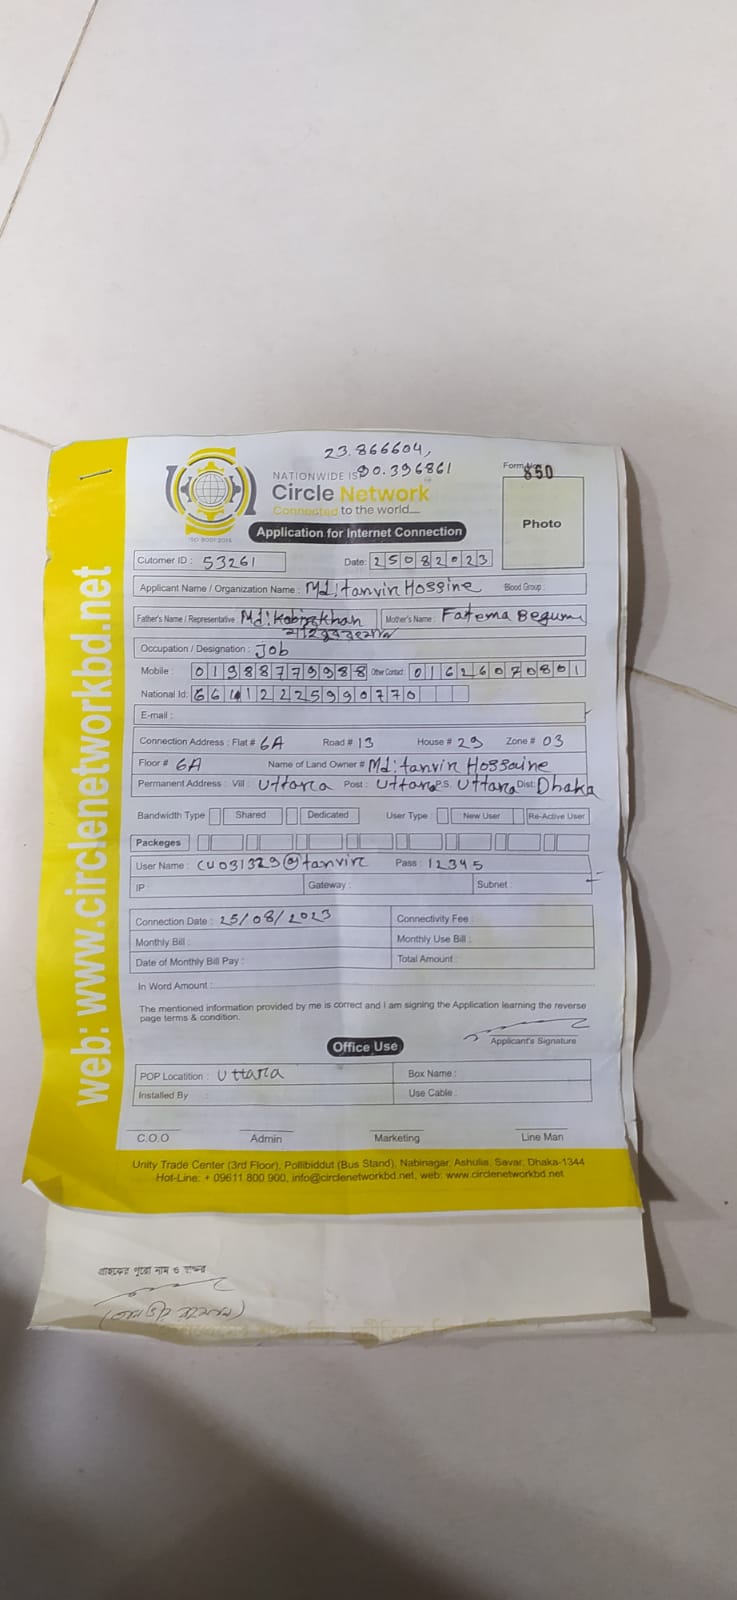 23.866604,
90.396861
NATIONWIDE IS
Form No. 850
Circle Network
Connected to the world....
ISO 9001:2015
Photo
Application for Internet Connection
Cutomer ID : 53261 Date: 25082023
Applicant Name / Organization Name : Md: tanvir Hossine Blood Group :
Father's Name / Representative : Md: Kabir khan Mother's Name : Fatema Begum
Occupation / Designation : Job
Mobile : 01988779988 Other Contact : 01626070801
National Id:
E-mail :
Connection Address : Flat # 6A Road # 13 House # 29 Zone # 03
Floor # 6A Name of Land Owner # Md: tanvir Hossaine
Permanent Address : Vill : Uttara Post : Uttara P.S. Uttara Dist: Dhaka
Bandwidth Type Shared Dedicated User Type : New User Re-Active User
Packeges
User Name : CU031329@tanvir Pass : 12345
IP : Gateway : Subnet :
Connection Date : 25/08/2023 Connectivity Fee :
Monthly Bill : Monthly Use Bill :
Date of Monthly Bill Pay : Total Amount :
In Word Amount :
The mentioned information provided by me is correct and I am signing the Application learning the reverse
page terms & condition.
Applicant's Signature
Office Use
POP Locatition : Uttara Box Name :
Installed By : Use Cable :
C.O.O Admin Marketing Line Man
Unity Trade Center (3rd Floor), Pollibiddut (Bus Stand), Nabinagar, Ashulia, Savar, Dhaka-1344
Hot-Line: + 09611 800 900, info@circlenetworkbd.net, web: www.circlenetworkbd.net
web: www.circlenetworkbd.net
গ্রাহকের পুরো নাম ও স্বাক্ষর